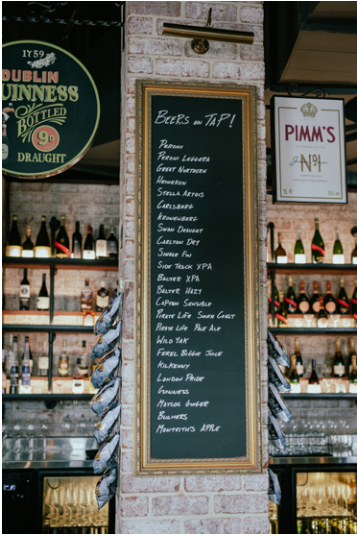 1759
DUBLIN
GUINNESS
BOTTLED
9D
DRAUGHT
BEERS ON TAP!
PERONI
PERONI LEGGERA
GREAT NORTHERN
HEINEKEN
STELLA ARTOIS
CARLSBERG
KRONENBERG
SWAN DRAUGHT
CARLTON DRY
SINGLE FIN
SIDE TRACK XPA
BALTER XPA
BALTER HAZY
CAPTAIN SENSIBLE
PIRATE LIFE SOUTH COAST
PIRATE LIFE PALE ALE
WILD YAK
FERAL BIGGIE JUICE
KILKENNY
LONDON PRIDE
GUINNESS
MATSOS GINGER
BULMERS
MONTEITH'S APPLE
PIMM'S
No1